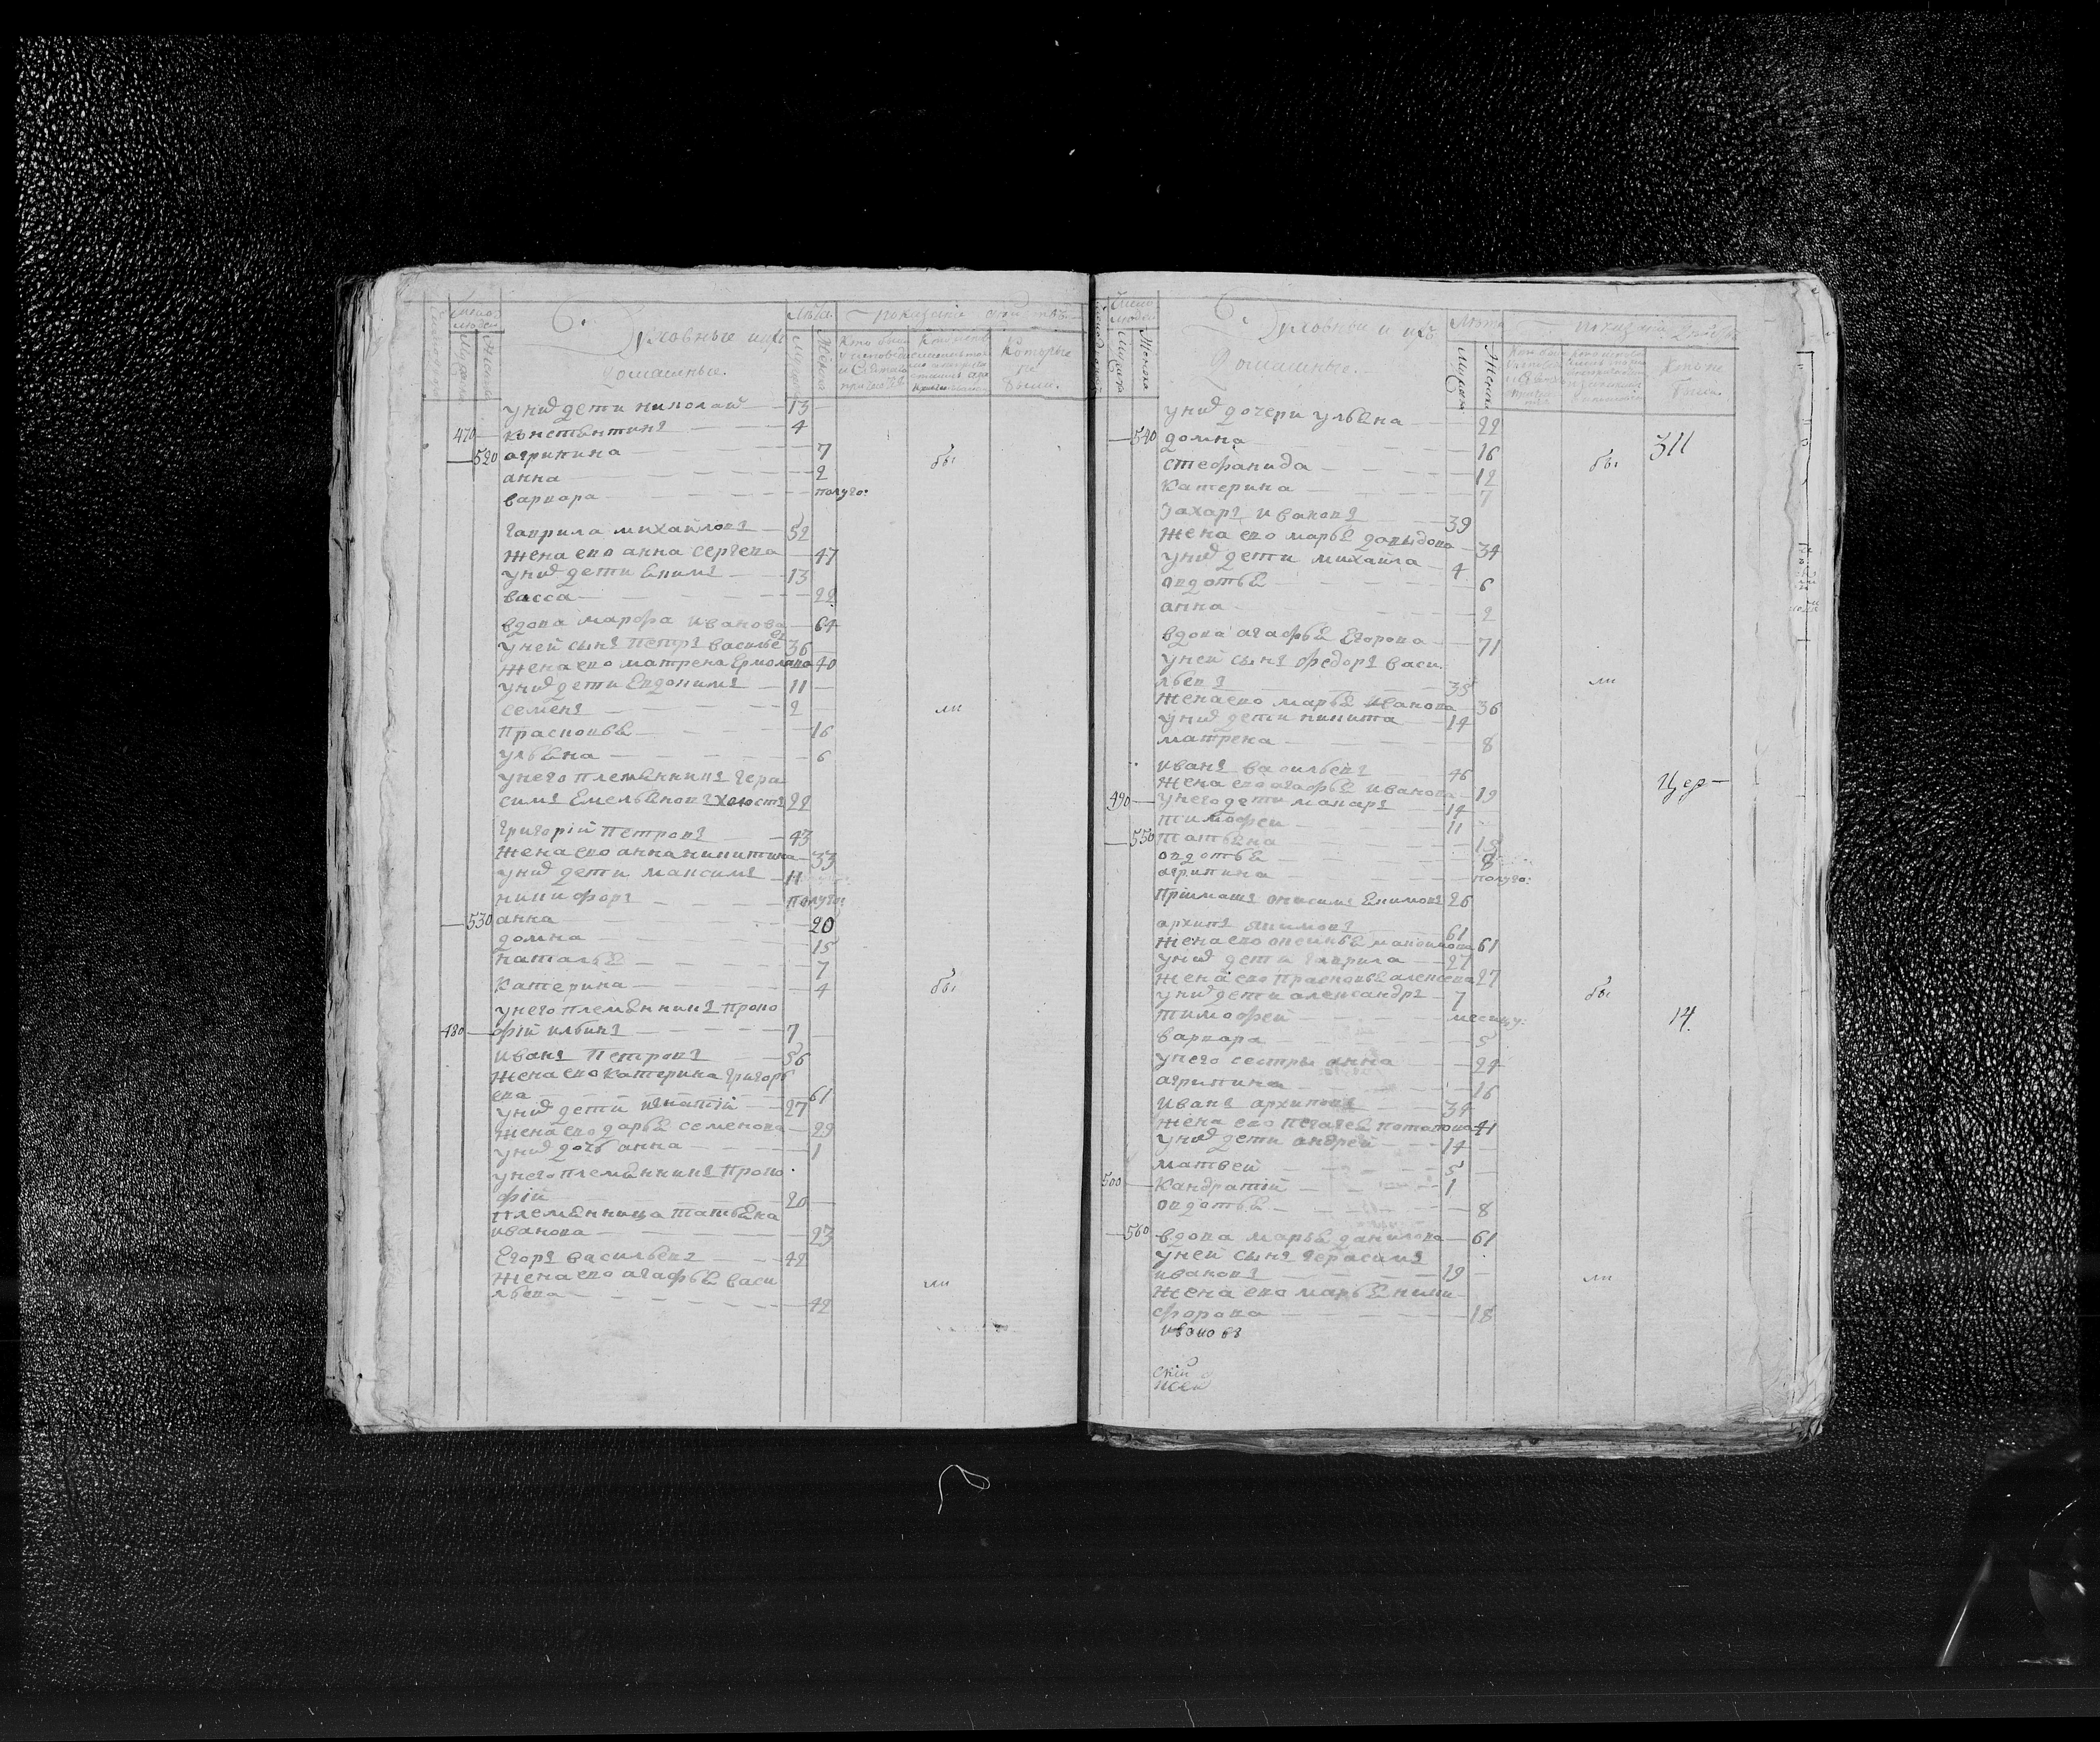 Духовные и ихъ
домашные.
Лѣта
показаніе
Которые
не
были.
у нихъ дети николай — 13
470 константинъ — 4
520 агрипина — 7
анна — 2
бы
варвара — полуго:
гаврила михайловъ — 52
жена ево анна сергева — 47
у нихъ дети екимъ — 13
васса — 22
вдова марфа иванова — 64
у ней сынъ петръ василье въ 36
жена ево матрена ермолава 40
у нихъ дети евдокимъ — 11
семенъ — 2
ли
прасковьѣ — 16
ульѣна — 6
у него племѣнникъ гера
симъ емельѣновъ холостъ 22
григорій петровъ — 43
жена ево анна никитина 33
у нихъ дети максимъ — 11
никифоръ — полуго:
530 анна — 20
домна — 15
натальѣ — 7
катерина — 4
бы
у него племѣнникъ проко
480 фій ильинъ — 7
иванъ петровъ — 56
жена ево катерина григорь
ева — 61
у нихъ дети игнатій — 27
жена ево дарьѣ семенова — 29
у нихъ дочь анна — 1
у него племѣнникъ проко
фій — 20
племѣнница татьѣна
иванова — 23
егоръ васильевъ — 42
жена ево агафьѣ васи
ли
льева — 42
Духовные и ихъ
домашные.
Лѣта
311
у нихъ дочери ульѣна — 22
540 домна — 16
стефанида — 12
бы
катерина — 7
захаръ ивановъ — 39
жена ево марьѣ давыдова — 34
у нихъ дети михайла — 4
авдотьѣ — 6
анна — 2
вдова агафьѣ егорова — 71
у ней сынъ федоръ васи
льевъ — 35
ли
жена ево марьѣ иванова — 36
у нихъ дети никита — 14
матрена — 8
иванъ васильевъ — 46
жена ево агафьѣ иванова — 19
Цер—
490 у него дети макаръ — 14
тимофей — 11
550 татьѣна — 15
авдотьѣ — 8
агрипина — полуго:
пріимашъ анисимъ екимовъ 26
архипъ акимовъ — 61
жена ево аксиньѣ максимова 61
у нихъ дети гаврила — 27
жена ево прасковьѣ алексева 27
у нихъ дети александръ — 7
бы
тимофей — месяцу:
14.
варвара — 5
у него сестры анна — 24
агрипина — 16
иванъ архиповъ — 34
жена ево пелагеѣ потапова 41
у нихъ дети андрей — 14
матвей — 5
500 кандратій — 1
авдотьѣ — 8
560 вдова марьѣ данилова — 61
у ней сынъ герасимъ
ивановъ — 19
ли
жена ево марьѣ ники
форова — 18
ивановъ
скій